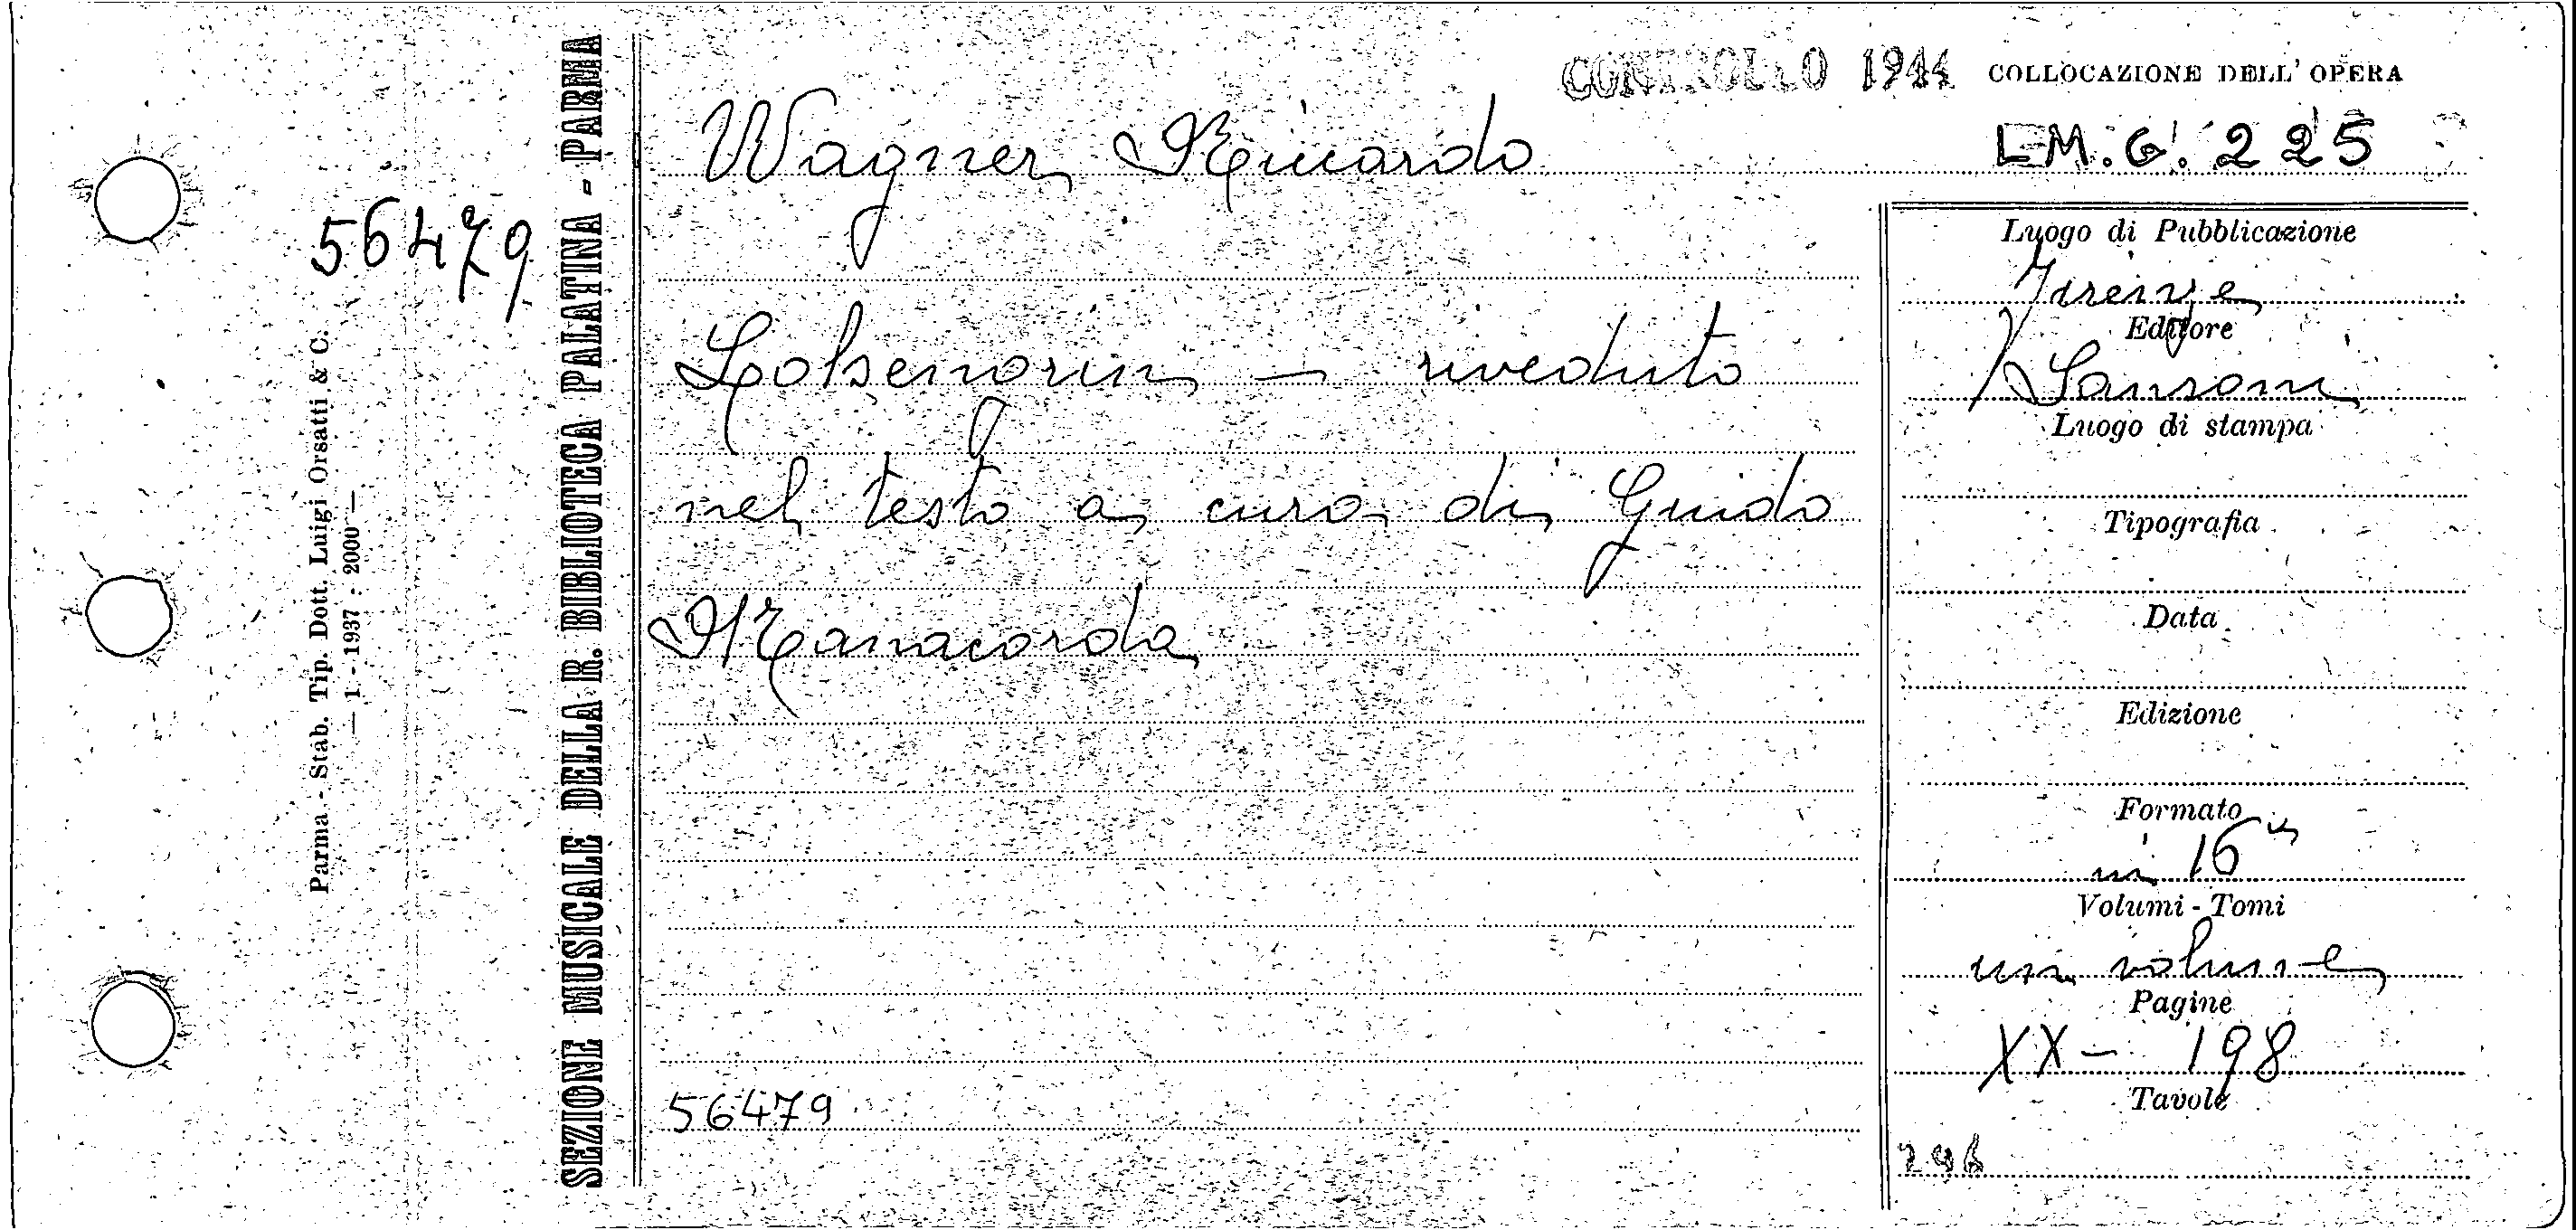 CONTROLLO 1944
COLLOCAZIONE DELL' OPERA
Wagner Riccardo
L.M.G. 225
56479
Parma - Stab. Tip. Dott. Luigi Orsatti & C.
— 1 - 1937 : 2000 —
SEZIONE MUSICALE DELLA R. BIBLIOTECA PALATINA - PARMA
Lohengrin — riveduto
nel testo a cura di Guido
Manacorda
56479
Luogo di Pubblicazione
Firenze
Editore
Sansoni
Luogo di stampa
Tipografia
Data
Edizione
Formato
in 16°
Volumi - Tomi
un volume
Pagine
XX - 198
Tavole